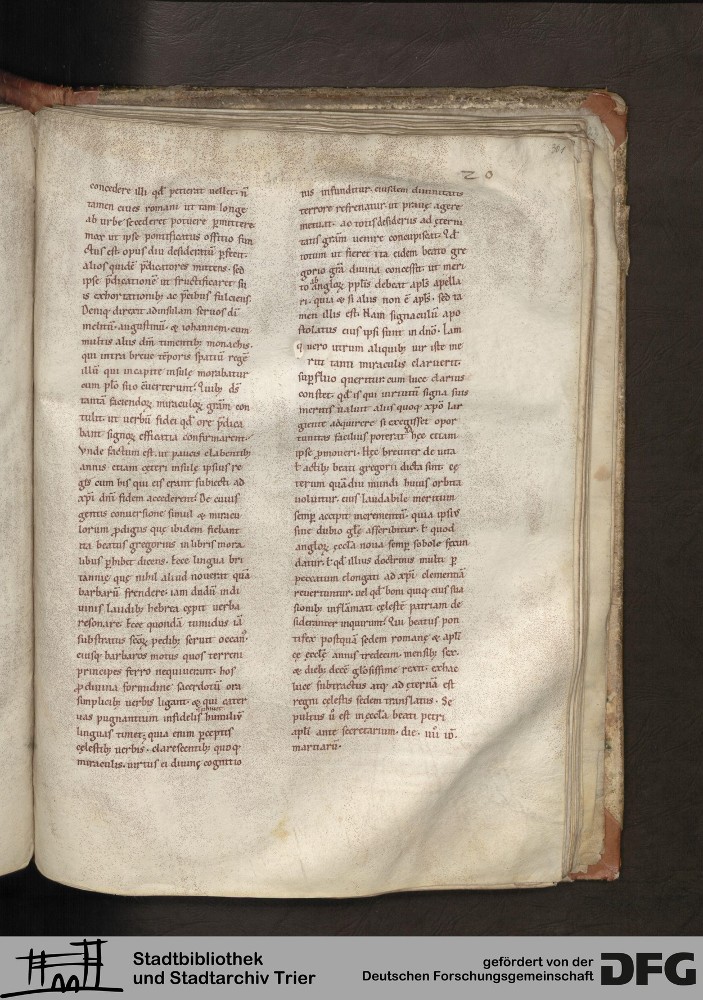 301
20
concedere illi qd petierat uellet· n̄
tamen ciues romani ut tam longe
ab urbe secederet potuere pmittere
mox ut ipse pontificatus offitio fun
ctus est· opus diu desideratū pfecit·
alios quidē pdicatores mittens· sed
ipse pdicationē ut fructificaret su
is exhortationib; ac pcibus fulciens·
Deniq; direxit ad insulam seruos dī
mellitū· augustinū· & iohannem· cum
multis aliis dm̄ timentib; monachis·
qui intra breue tēporis spatiū regē
illū qui in capite insule morabatur
cum plo suo cuerterunt· Quib; ds̄
tantā faciendoꝝ miraculoꝝ grām con
tulit· ut uerbū fidei qd ore pdica
bant signoꝝ efficatia confirmarent·
Vnde factum est· ut paucis elabentib;
annis etiam ceteri insulę ipsius re
ges cum his qui eis erant subiecti ad
xpi dni fidem accederent· De cuius
gentis conuersione simul & miracu
lorum pdigiis quę ibidem fiebant
ita beatus gregorius in libris mora
libus phibet dicens· Ecce lingua bri
tannię quę nihil aliud nouerat quā
barbarū frendere· iam dudū in di
uinis laudib; hebrea cępit uerba
resonare· Ecce quondā tumidus iā
substratus scōꝝ pedib; seruit oceanꝰ
eiusq; barbaros motus quos terreni
principes ferro nequiuerunt· hos
p diuina formidine sacerdotū ora
simplicib; uerbis ligant· & qui cater
uas pugnantium infidelis
humiliū
linguas timet· quia enim pceptis
cęlestib; uerbis· clarescentib; quoq;
miraculis· uirtus ei diuinę cognitio
nis infunditur· eiusdem diuinitatis
terrore refrenatur· ut praue agere
metuat· ac totis desideriis ad ęterni
tatis grām uenire concupiscat· Qd
totum ut fieret ita eidem beato gre
gorio grā diuina concessit· ut meri
to ab angloꝝ pplis debeat apls apella
ri· quia & si aliis non ē apls· sed ta
men illis est· Nam signaculū apo
stolatus eius ipsi sunt in dnō· Iam
q uero utrum aliquib; uir iste me
riti tanti miraculis claruerit·
supfluo queritur· cum luce clarius
constet· qd is qui uirtutū signa suis
meritis ualuit aliis quoq; xpō lar
giente adquirere si exegisset opor
tunitas facilius poterat hęc etiam
ipse pmoueri· Hęc breuiter de uita
t actib; beati gregorii dicta sint· cę
terum quādiu mundi huius orbita
uoluitur· eius laudabile meritum
semp accipit incrementū· quia ipsiꝰ
sine dubio glę asscribitur· t quod
angloꝝ eccla noua semp sobole fecun
datur· t qd illius doctrinis multi p
peccatum elongati ad xpi clementiā
reuertuntur· uel qd boni quiq; eius sua
sionib; inflāmati cęlestē patriam de
sideranter inquirunt· Qui beatus pon
tifex postquā sedem romanę & apli
cę ecclę annis tredecim· mensib; sex·
& dieb; decē glosissime rexit· ex hac
luce subtractus atq; ad ęternā est
regni cęlestis sedem translatus· Se
pultus ū est in eccla beati petri
apli ante secretarium· die· iiii id·
martiarū·
Stadtbibliothek
und Stadtarchiv Trier
gefördert von der
Deutschen Forschungsgemeinschaft
DFG